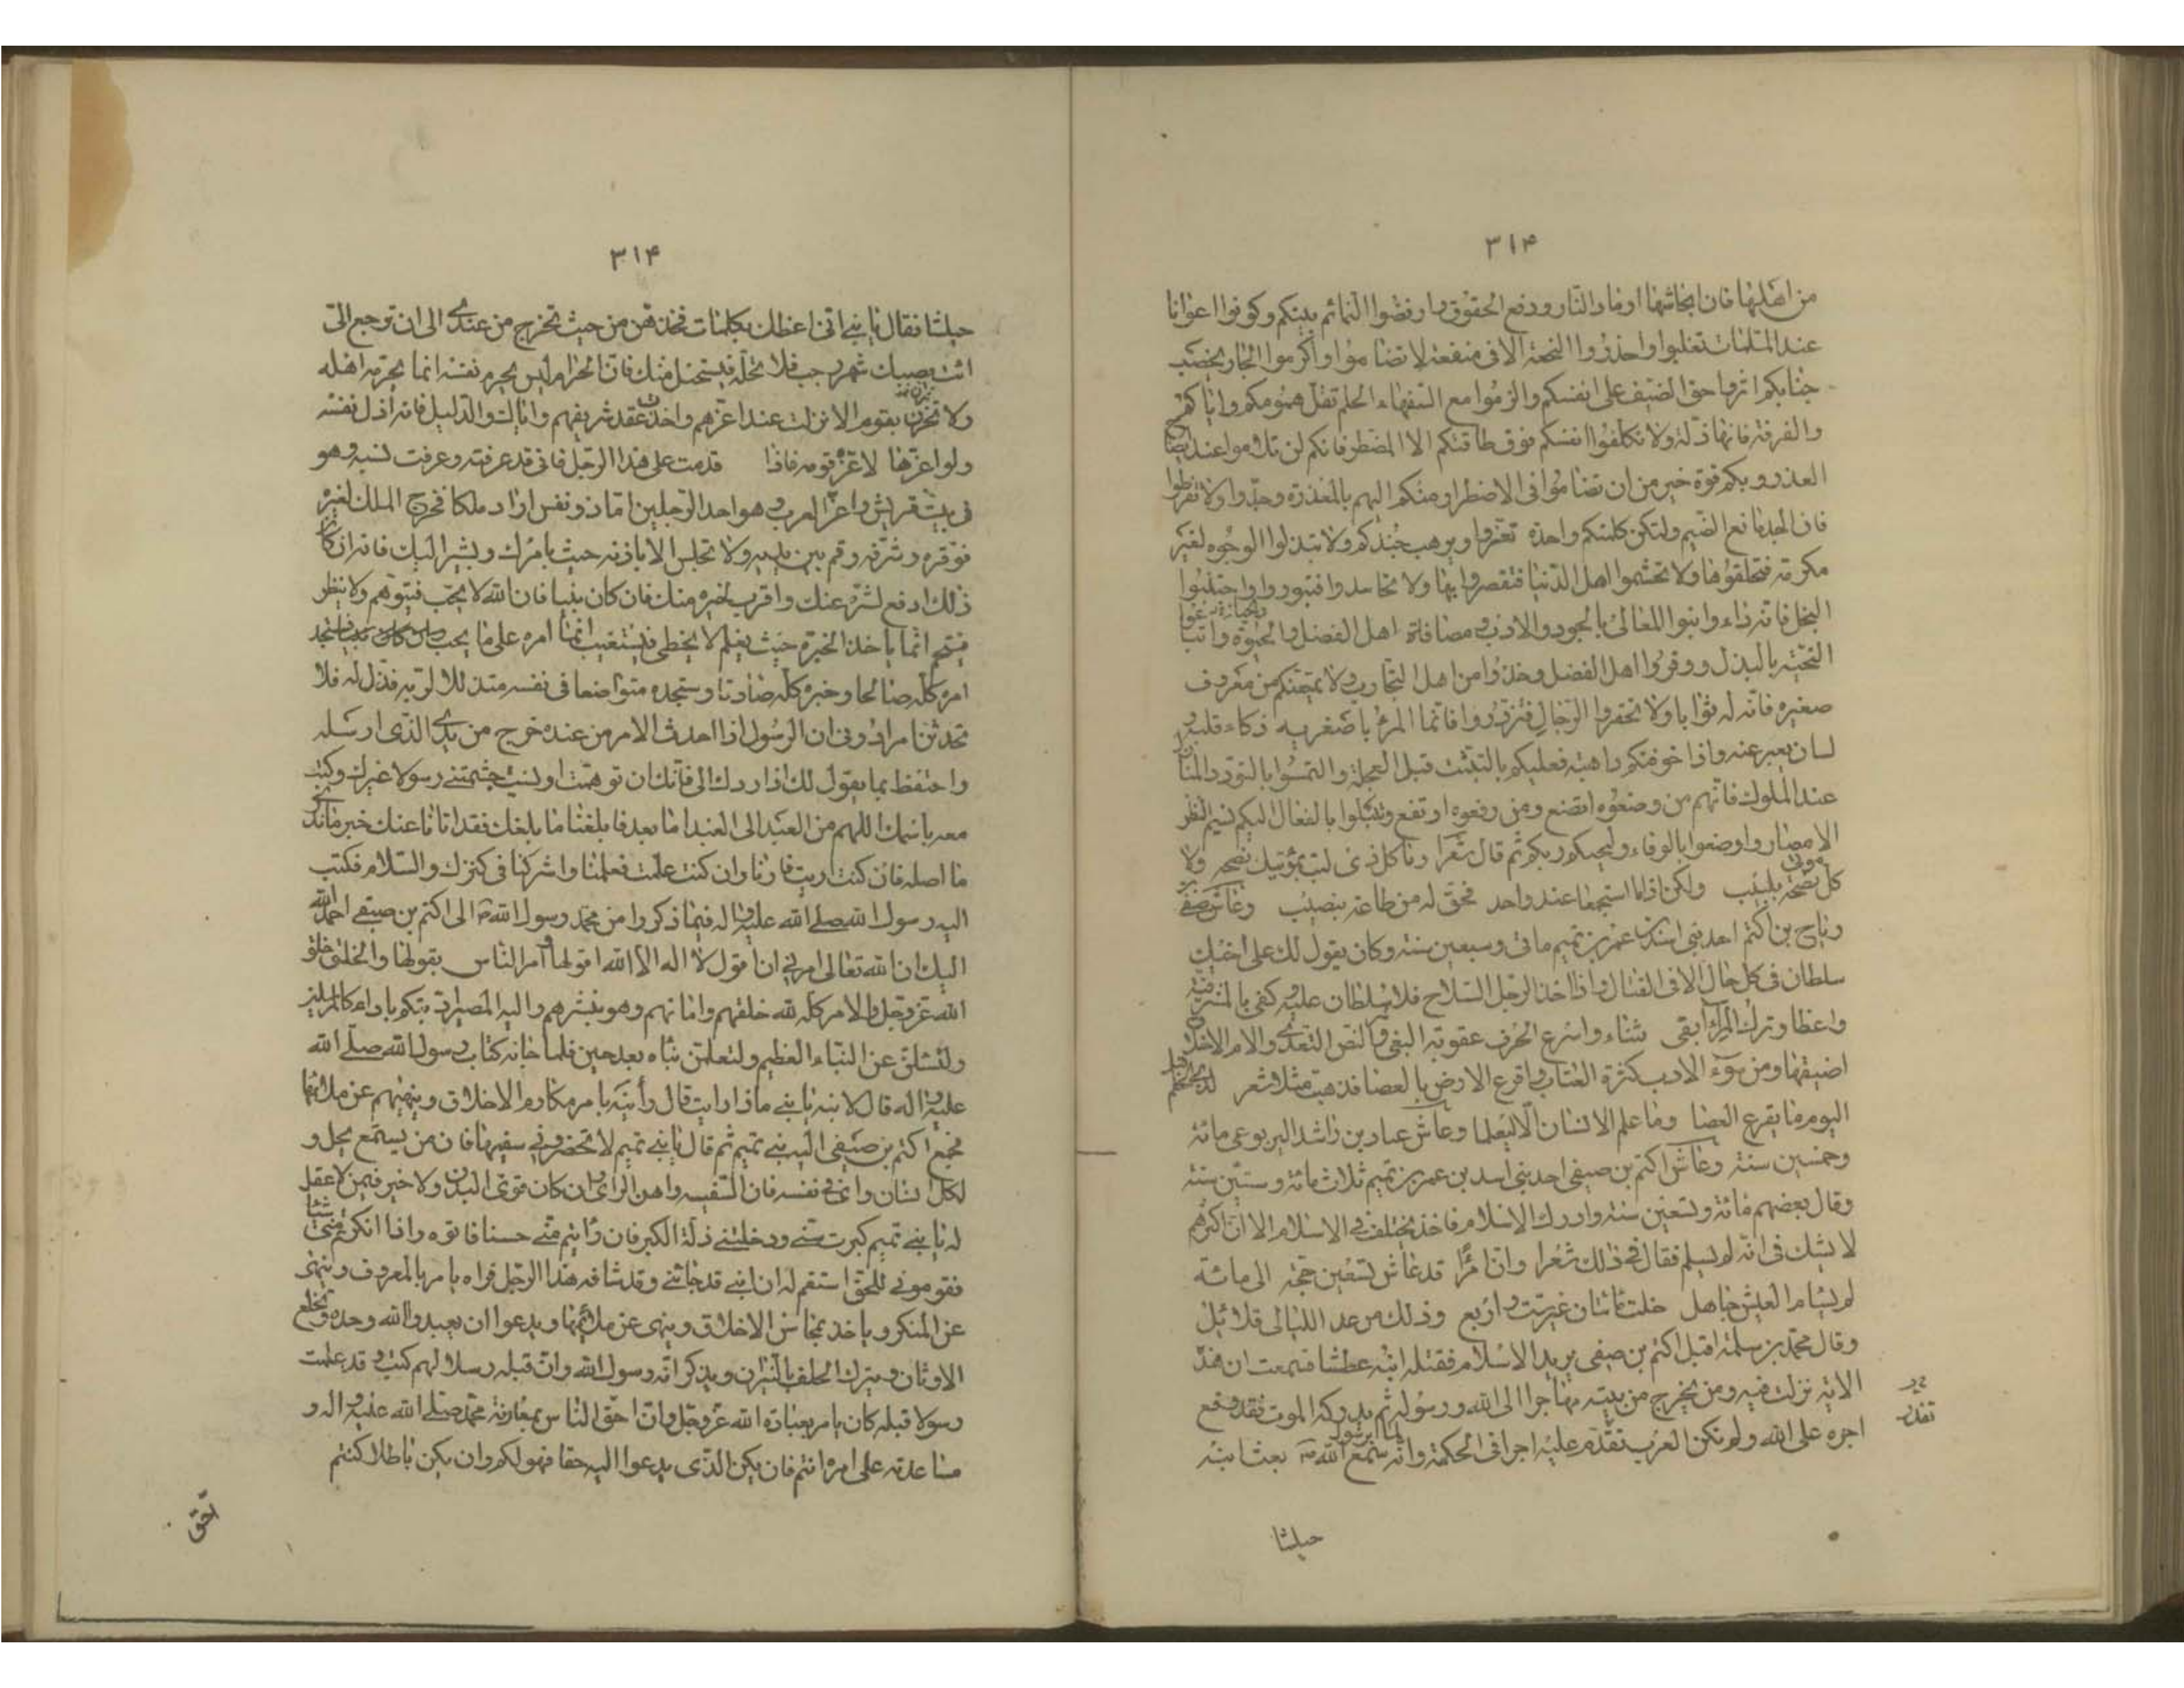 ٣١۴
من اهلها فان انجاشها اوفاد النار ودفع الحقوق وارفضوا النمائم بينكم وكونوا اعوانا
عند الملمات تغلبوا واحذروا النجعة الا فى منفعة لا تضاموا واكرموا الجار بخصب
جنابكم اثروا حق الضيف على انفسكم والزموا مع السفهاء الحلم تقل همومكم واياكم
والفرقة فانها ذلة ولا تكلفوا انفسكم فوق طاقتكم الا المضطر فانكم لن تلاموا عند ايضاح
العذر وبكم قوة خير من ان تضاموا فى الاضطرار منكم اليهم بالمعذرة وجدوا ولا تفرطوا
فان الجد مانع الضيم ولتكن كلمتكم واحدة تعزوا ويرهب جندكم ولا تبذلوا الوجوه لغير
مكرمة فتخلقوها ولا تجشموا اهل الدنيا فتقصروا بها ولا تحاسدوا فتبوروا واجتنبوا
البخل فانه داء وابنوا المعالى بالجود والادب ومصافاة اهل الفضل والحيوة وابتاعوا
المحبة بالبذل ووقروا اهل الفضل وخذوا من اهل التجارب ولا يمنعنكم من معروف
صغيره فانه له ثوابا ولا تحقروا الرجال فتزدروا فانما المرء باصغريه ذكاء قلبه و
لسان يعبر عنه واذا خوفتكم داهية فعليكم بالتثبت قبل العجلة والتمسوا بالتودد المنازل
عند الملوك فانهم من وضعوه اتضع ومن رفعوه ارتفع وتنبلوا بالفعال اليكم تسم النظر
الامصار واوضعوا بالوفاء وليحبكم ربكم ثم قال شعرا وما كل ذى لب بمؤتيك نصحه ولا
كل مؤتى نصحه بلبيب ولكن اذا ما استجمعا عند واحد فحق له من طاعة بنصيب وعاش صيفى
رباح بن اكثم احد بنى اسد بن عمر بن تميم مأتى وسبعين سنة وكان يقول لك على اخيك
سلطان فى كل حال الا فى القتال واذا اخذ الرجل السلاح فلا سلطان عليه وكفى بالمشرفية
واعظا وترك المراء ابقى ثناء واسرع الحرف عقوبة البغى وشر النصر التعدى والام الاخلاق
اضيقها ومن سوء الادب كثرة العتاب واقرع الارض بالعصا فذهبت مثلا شعر لذى الحلم قبل
اليوم ما يقرع العصا وما علم الانسان الا ليعلما وعاش عباد بن راشد اليربوعى مائة
وخمسين سنة وعاش اكثم بن صيفى احد بنى اسد بن عمر بن تميم ثلاث مائة وستين سنة
وقال بعضهم مائة وتسعين سنة وادرك الاسلام فاختلف فى الاسلام الا ان اكثرهم
لا يشك فى انه لم يسلم فقال فى ذلك شعرا وان امرا قد عاش تسعين حجة الى مائة
لم يسام العيش جاهل خلت مائتان غير ست واربع وذلك من عد الليالى قلائل
وقال محمد بن سلمة اقبل اكثم بن صيفى يريد الاسلام فقتله ابنه عطشا فسمعت ان هذه
الاية نزلت فيه ومن يخرج من بيته مهاجرا الى الله ورسوله ثم يدركه الموت فقد وقع
اجره على الله ولم تكن العرب تقدم عليه اجرا فى الحكمة وانه لما سمع برسول الله ص بعث ابنه
حبلشا
٣١۴
حبلشا فقال يا بنى انى اعظك بكلمات فخذ فهن من حيث تخرج من عندى الى ان ترجع الى
ائت نصيبك شهر رجب فلا تحله فيستحل منك فان الحرام ليس يحرم نفسه انما يحرمه اهله
ولا تمرن بقوم الا نزلت عند اعزهم واحدث عقد شريفهم واياك والذليل فانه اذل نفسه
ولو اعزها لاعزه قومه فاذا قدمت على هذا الرجل فانى قد عرفته وعرفت نسبه وهو
فى بيت قريش واعز العرب وهو احد الرجلين اما ذو نفس اراد ملكا فخرج الملك لغيره
فوقره وشرفه وقم بين يديه ولا تجلس الا باذنه حيث يامرك ويشير اليك فانه ان كان
ذلك ادفع لشره عنك واقرب لخيره منك فان كان نبيا فان الله لا يحب فيتوهم ولا ينظر
فيتجسم انما ياخذ الخيرة حيث يعلم لا يخطى فيستعتب انما امره على ما يحب فستجد
امره كله صالحا وخبره كله صادقا وستجده متواضعا فى نفسه متذللا لربه فذل له فلا
تحدثن امرا دونى ان الرسول اذا احدث الامر من عنده خرج من يدى الذى ارسله
واحتفظ بما يقول لك اذا ردك الى فانك ان توهمت او نسيت جشمتنى رسولا غيرك وكتب
معه باسمك اللهم من العبد الى العبد اما بعد فابلغنا ما بلغك فقد اتانا عنك خبر ما ندرى
ما اصله فان كنت اريت فارنا وان كنت علمت فعلمنا واشركنا فى كنزك والسلام فكتب
اليه رسول الله صلى الله عليه واله فيما ذكروا من محمد رسول الله ص الى اكثم بن صيفى احمد الله
اليك ان الله تعالى امرنى ان اقول لا اله الا الله اقولها وآمر الناس بقولها والخلق خلق
الله عز وجل والامر كله لله خلقهم واماتهم وهو ينشرهم واليه المصير ادبتكم باداب المرسلين
ولتسئلن عن النباء العظيم ولتعلمن نباه بعد حين فلما جائه كتاب رسول الله صلى الله
عليه واله قال لابنه يا بنى ماذا رايت قال رأيته يامر مكارم الاخلاق وينهيهم عن ملائمها
فجمع اكثم بن صيفى اليه بنى تميم ثم قال يا بنى تميم لا تحضرونى سفيها فان من يسمع يخل و
لكل انسان راى فى نفسه فان السفيه واهن الراى وان كان قوى البدن ولا خير فيمن لا عقل
له يا بنى تميم كبرت سنى ودخلتنى ذلة الكبر فان رايتم منى حسنا فاتوه واذا انكرتم منى شيئا
فقومونى للحق استقم له ان ابنى قد جائنى وقد شافه هذا الرجل فراه يامر بالمعروف وينهى
عن المنكر وياخذ بمحاسن الاخلاق وينهى عن ملائمها ويدعوا ان يعبدوا الله وحده وتخلع
الاوثان ويترك الحلف بالنيران ويذكر انه رسول الله وان قبله رسلا لهم كتب وقد علمت
رسولا قبله كان يامر بعبادة الله عز وجل وان احق الناس بمعاونة محمد صلى الله عليه واله و
مساعدته على امره انتم فان يكن الذى يدعوا اليه حقا فهو لكم وان يكن باطلا كنتم
احق